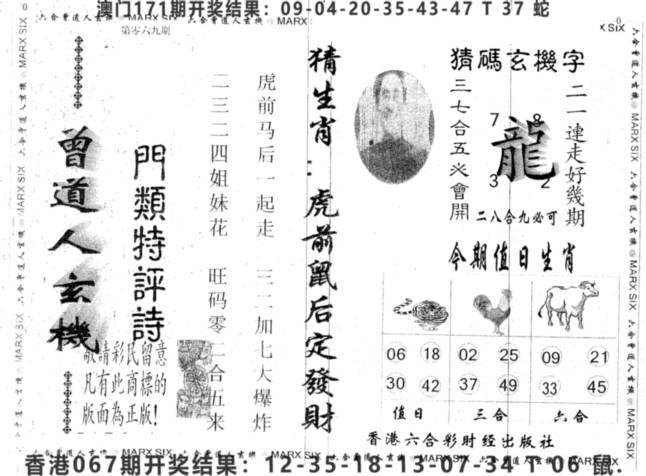 澳门171期开奖结果：09-04-20-35-43-47 T 37 蛇
六合曾道人玄機 MARX SIX
第零六九期
曾道人玄機
門類特評詩
敬請彩民留意
凡有此商標的
版面為正版!
二三二二四姐妹花 旺码零二合五来
虎前马后一起走 三二加七大爆炸
猜生肖：虎前鼠后定發財
猜碼玄機字
三七合五必會開
7 8
龍
3 2
二一連走好幾期
二八合九必可
今期值日生肖
06 18 02 25 09 21
30 42 37 49 33 45
值日 三合 六合
香港六合彩财经出版社
香港067期开奖结果：12-35-18-13-07-34 T 06 兔